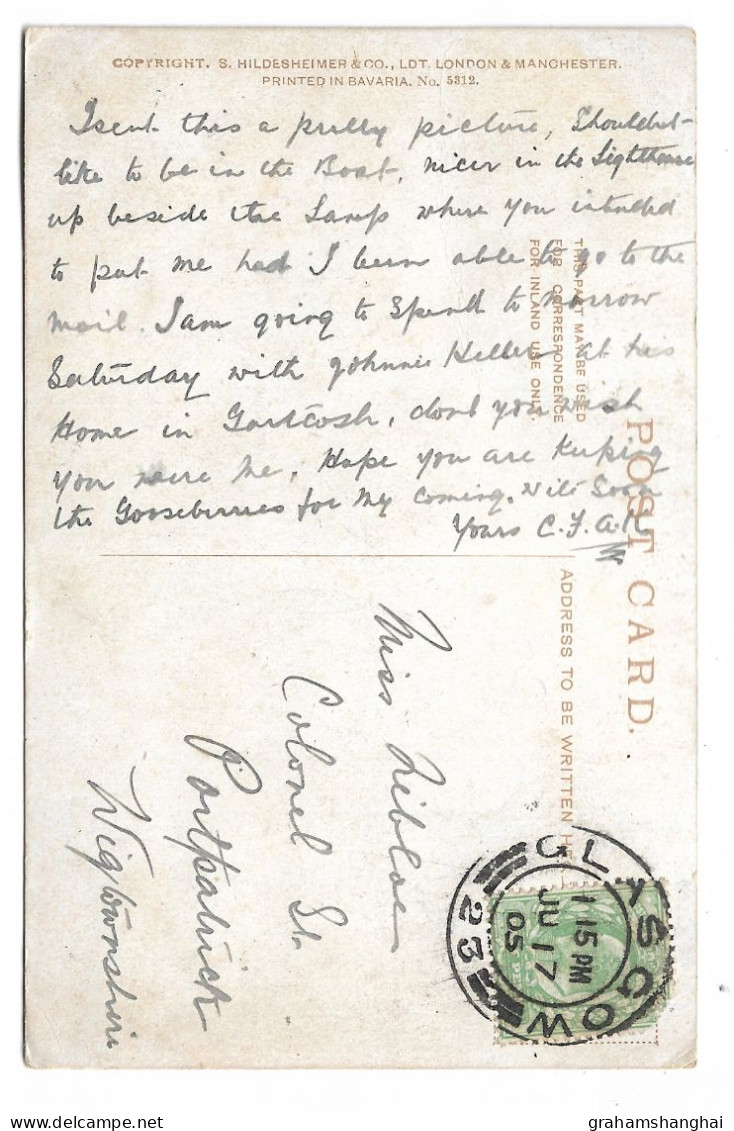 COPYRIGHT. S. HILDESHEIMER & CO., LDT. LONDON & MANCHESTER.
PRINTED IN BAVARIA. No. 5312.
Isent this a pretty picture, Shouldnt
like to be in the Boat, nicer in the Lighthouse
up beside the Lamp where you intended
to put me had I been able to go to the
mail. I am going to Spend to morrow
Saturday with Johnnie Keller at his
Home in Gartcosh, dont you wish
you were me, Hope you are Keeping
the Gooseberries for my coming. Soon
Yours C.F.A.K.
THIS PART MAY BE USED
FOR CORRESPONDENCE
FOR INLAND USE ONLY.
POST CARD.
ADDRESS TO BE WRITTEN HE
Miss Nibloe
Colonel St.
Portpatrick
Wigtownshire
GLASGOW
1 15 PM
JU 17
05
23
grahamshanghai